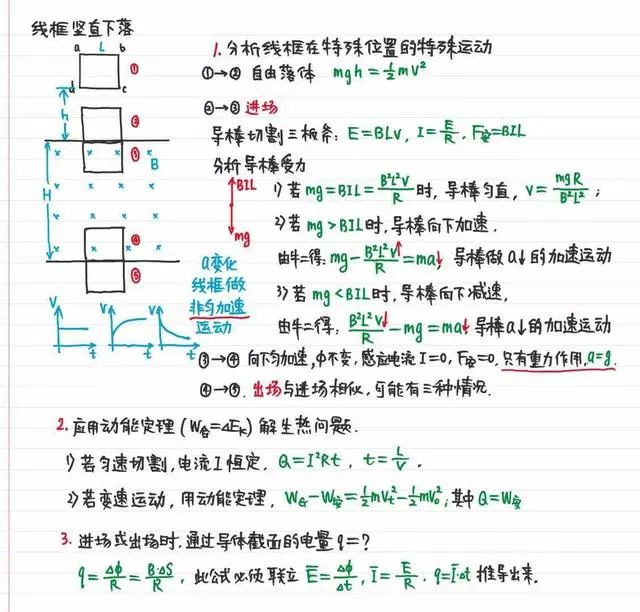 线框竖直下落
a L b
①
d c
h
②
③
× × × × B
H
④
⑤
a变化
线框做
非匀加速
运动
V t V t V t
1. 分析线框在特殊位置的特殊运动
①→② 自由落体 mgh=½mV²
②→③ 进场
导棒切割三板斧: E=BLV, I=E/R, F安=BIL
分析导棒受力
BIL
mg
1) 若mg=BIL=B²L²V/R时, 导棒匀直, V=mgR/B²L²;
2) 若mg>BIL时, 导棒向下加速.
由牛二得: mg-B²L²V↑/R=ma↓, 导棒做a↓的加速运动
3) 若mg<BIL时, 导棒向下减速,
由牛二得: B²L²V↓/R-mg=ma↓, 导棒a↓的加速运动
③→④ 向下匀加速, φ不变, 感应电流I=0, F安=0, 只有重力作用, a=g.
④→⑤. 出场与进场相似, 可能有三种情况.
2. 应用动能定理(W合=ΔEk)解生热问题.
1) 若匀速切割, 电流I恒定, Q=I²Rt, t=L/V.
2) 若变速运动, 用动能定理, WG-W安=½mVt²-½mV0²; 其中Q=W安
3. 进场或出场时, 通过导体截面的电量q=?
q=Δφ/R=B·ΔS/R, 此公式必须联立 Ē=Δφ/Δt, Ī=Ē/R, q=Ī·Δt 推导出来.